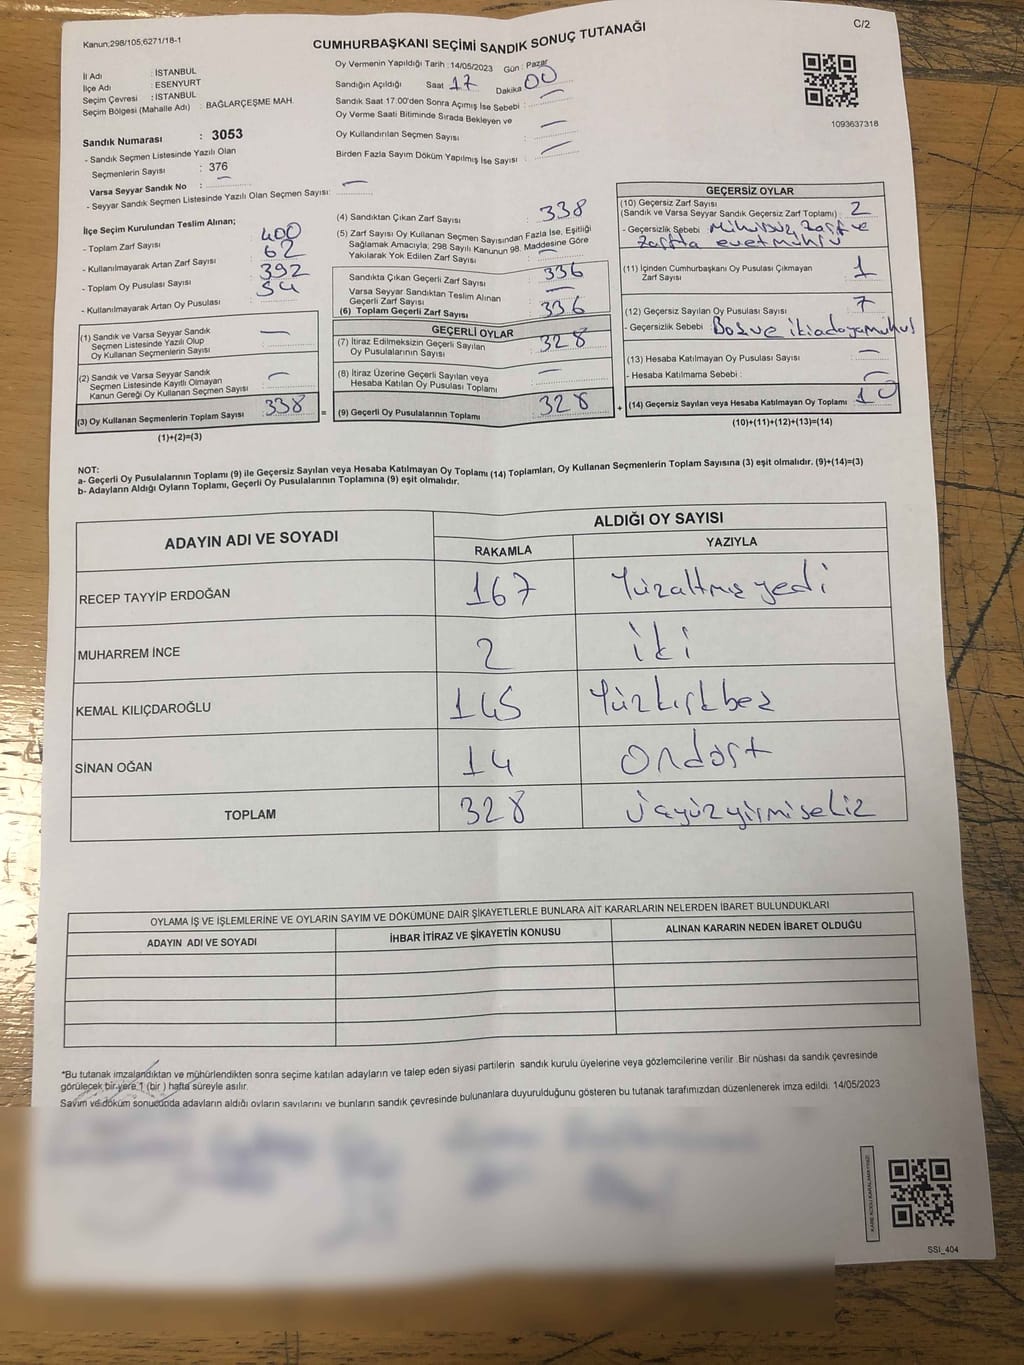 Kanun;298/105,6271/18-1
C/2
CUMHURBAŞKANI SEÇİMİ SANDIK SONUÇ TUTANAĞI
İl Adı : İSTANBUL
İlçe Adı : ESENYURT
Seçim Çevresi : İSTANBUL
Seçim Bölgesi (Mahalle Adı) : BAĞLARÇEŞME MAH.
Sandık Numarası : 3053
- Sandık Seçmen Listesinde Yazılı Olan
Seçmenlerin Sayısı : 376
Varsa Seyyar Sandık No : —
- Seyyar Sandık Seçmen Listesinde Yazılı Olan Seçmen Sayısı: —
Oy Vermenin Yapıldığı Tarih :14/05/2023 Gün : Pazar
Sandığın Açıldığı Saat 17 Dakika 00
Sandık Saat 17.00'den Sonra Açmış İse Sebebi : —
Oy Verme Saati Bitiminde Sırada Bekleyen ve
Oy Kullandırılan Seçmen Sayısı : —
Birden Fazla Sayım Döküm Yapılmış İse Sayısı : —
1093637318
İlçe Seçim Kurulundan Teslim Alınan;
- Toplam Zarf Sayısı : 400
- Kullanılmayarak Artan Zarf Sayısı : 62
- Toplam Oy Pusulası Sayısı : 392
- Kullanılmayarak Artan Oy Pusulası : 54
(1) Sandık ve Varsa Seyyar Sandık
Seçmen Listesinde Yazılı Olup
Oy Kullanan Seçmenlerin Sayısı : —
(2) Sandık ve Varsa Seyyar Sandık
Seçmen Listesinde Kayıtlı Olmayan
Kanun Gereği Oy Kullanan Seçmen Sayısı : —
(3) Oy Kullanan Seçmenlerin Toplam Sayısı : 338 =
(1)+(2)=(3)
(4) Sandıktan Çıkan Zarf Sayısı : 338
(5) Zarf Sayısı Oy Kullanan Seçmen Sayısından Fazla İse, Eşitliği
Sağlamak Amacıyla; 298 Sayılı Kanunun 98. Maddesine Göre
Yakılarak Yok Edilen Zarf Sayısı : —
Sandıkta Çıkan Geçerli Zarf Sayısı : 336
Varsa Seyyar Sandıktan Teslim Alınan
Geçerli Zarf Sayısı : —
(6) Toplam Geçerli Zarf Sayısı : 336
GEÇERLİ OYLAR
(7) İtiraz Edilmeksizin Geçerli Sayılan
Oy Pusulalarının Sayısı : 328
(8) İtiraz Üzerine Geçerli Sayılan veya
Hesaba Katılan Oy Pusulası Toplamı : —
(9) Geçerli Oy Pusulalarının Toplamı : 328 +
GEÇERSİZ OYLAR
(10) Geçersiz Zarf Sayısı
(Sandık ve Varsa Seyyar Sandık Geçersiz Zarf Toplamı) : 2
- Geçersizlik Sebebi : Mühürsüz zarf ve
zarfta evet mührü
(11) İçinden Cumhurbaşkanı Oy Pusulası Çıkmayan
Zarf Sayısı : 1
(12) Geçersiz Sayılan Oy Pusulası Sayısı : 7
- Geçersizlik Sebebi : Boş ve iki adaya
(13) Hesaba Katılmayan Oy Pusulası Sayısı : —
- Hesaba Katılmama Sebebi : —
(14) Geçersiz Sayılan veya Hesaba Katılmayan Oy Toplamı : 10
(10)+(11)+(12)+(13)=(14)
NOT:
a- Geçerli Oy Pusulalarının Toplamı (9) ile Geçersiz Sayılan veya Hesaba Katılmayan Oy Toplamı (14) Toplamları, Oy Kullanan Seçmenlerin Toplam Sayısına (3) eşit olmalıdır. (9)+(14)=(3)
b- Adayların Aldığı Oyların Toplamı, Geçerli Oy Pusulalarının Toplamına (9) eşit olmalıdır.
ADAYIN ADI VE SOYADI ALDIĞI OY SAYISI
RAKAMLA YAZIYLA
RECEP TAYYİP ERDOĞAN 167 Yüzaltmış yedi
MUHARREM İNCE 2 iki
KEMAL KILIÇDAROĞLU 145 Yüzkırkbeş
SİNAN OĞAN 14 Ondört
TOPLAM 328 üçyüzyirmisekiz
OYLAMA İŞ VE İŞLEMLERİNE VE OYLARIN SAYIM VE DÖKÜMÜNE DAİR ŞİKAYETLERLE BUNLARA AİT KARARLARIN NELERDEN İBARET BULUNDUKLARI
ADAYIN ADI VE SOYADI İHBAR İTİRAZ VE ŞİKAYETİN KONUSU ALINAN KARARIN NEDEN İBARET OLDUĞU
*Bu tutanak imzalandıktan ve mühürlendikten sonra seçime katılan adayların ve talep eden siyasi partilerin sandık kurulu üyelerine veya gözlemcilerine verilir. Bir nüshası da sandık çevresinde
görülecek bir yere 1 (bir ) hafta süreyle asılır.
Sayım ve döküm sonucunda adayların aldığı oyların sayılarını ve bunların sandık çevresinde bulunanlara duyurulduğunu gösteren bu tutanak tarafımızdan düzenlenerek imza edildi. 14/05/2023
SSI_404